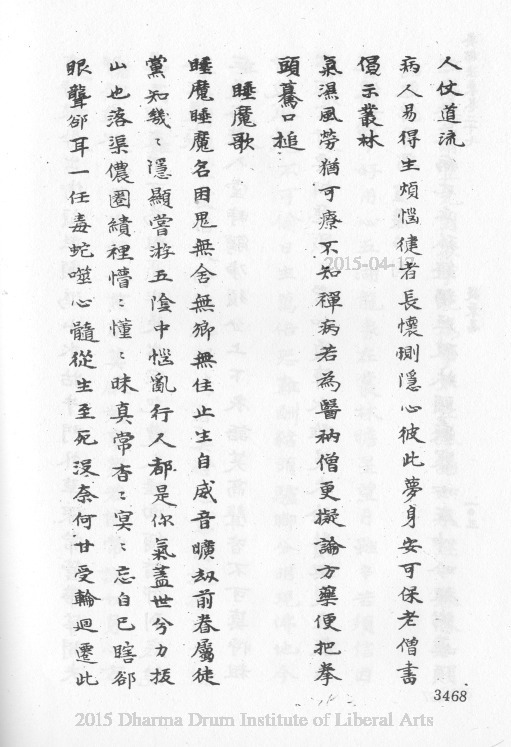 人仗道流
病人易得生煩惱徤者長懷惻隱心彼此夢身安可保老僧書
偈示叢林
氣濕風勞猶可療不知禪病若為醫衲僧更擬論方藥便把拳
頭驀口搥
睡魔歌
睡魔睡魔名困鬼無舍無鄉無住止生自威音曠刼前眷屬徒
黨知幾〻隱顯嘗游五陰中惱亂行人都是你氣蓋世兮力拔
山也落渠儂圈繢裡懵〻懂〻昧真常杳〻冥〻忘自已瞎郤
眼聾郤耳一任毒蛇噬心髓從生至死沒奈何甘受輪迴遷此
3468
2015-04-17
2015 Dharma Drum Institute of Liberal Arts